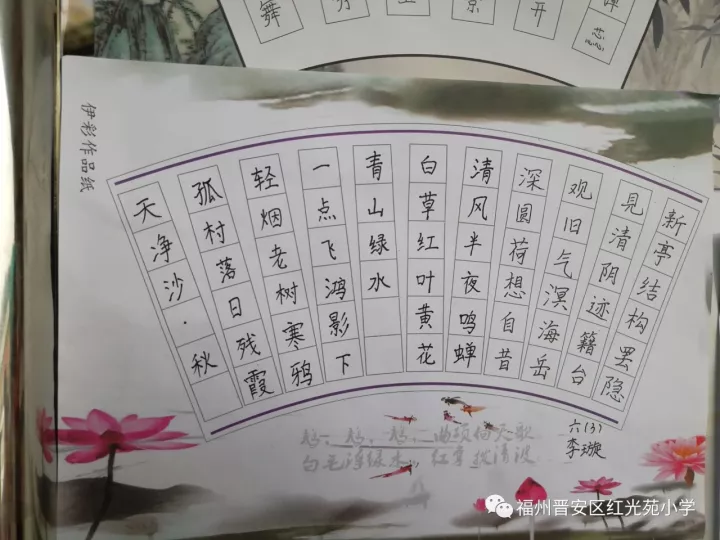 伊彩作品纸
舞
开
天净沙·秋
孤村落日残霞
轻烟老树寒鸦
一点飞鸿影下
青山绿水
白草红叶黄花
清风半夜鸣蝉
新亭结构罢隐
见清阴迹籍台
观旧气溟海岳
深圆荷想自昔
鹅、鹅、鹅、曲项向天歌
白毛浮绿水，红掌拨清波
六(3)
李璇
福州晋安区红光苑小学